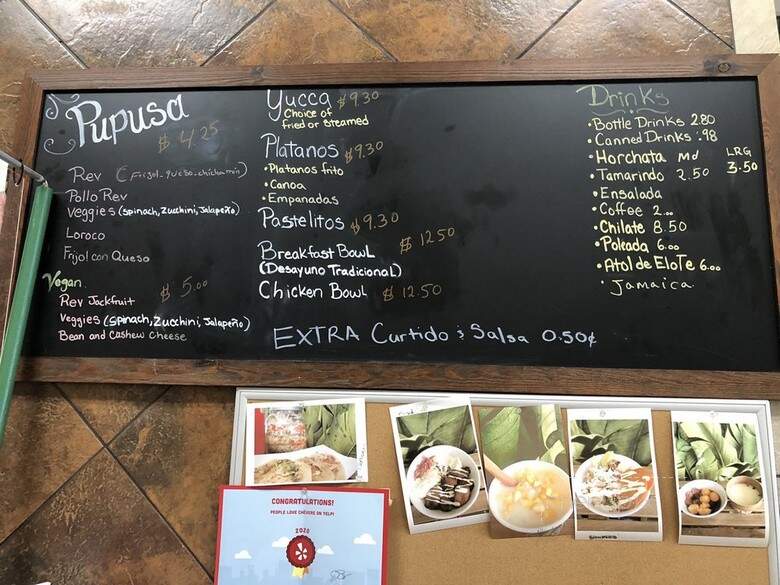 Pupusa $4.25
Rev (Frijol-queso-chicharrin)
Pollo Rev
Veggies (spinach, Zucchini, Jalapeño)
Loroco
Frijol con Queso
Vegan $5.00
Rev Jackfruit
Veggies (Spinach, Zucchini, Jalapeño)
Bean and Cashew Cheese
Yucca $9.30
Choice of
fried or steamed
Platanos $9.30
• Platanos frito
• Canoa
• Empanadas
Pastelitos $9.30
Breakfast Bowl $12.50
(Desayuno Tradicional)
Chicken Bowl $12.50
EXTRA Curtido & Salsa 0.50¢
Drinks
• Bottle Drinks 2.80
• Canned Drinks .98
• Horchata md LRG
• Tamarindo 2.50 3.50
• Ensalada
• Coffee 2.00
• Chilate 8.50
• Poleada 6.00
• Atol de Elote 6.00
• Jamaica
CONGRATULATIONS!
PEOPLE LOVE CHÉVERE ON YELP!
2020